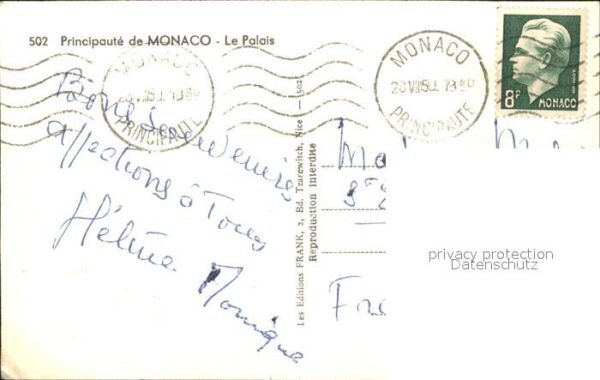 502 Principauté de MONACO - Le Palais
MONACO
PRINCIPAUTE
MONACO
PRINCIPAUTE
8F MONACO
Bons Souvenirs
affections à Tous
Hélène Monique
Les Editions FRANK, 2, Bd. Tzarewitch, Nice - 1502
Reproduction Interdite
privacy protection
Datenschutz